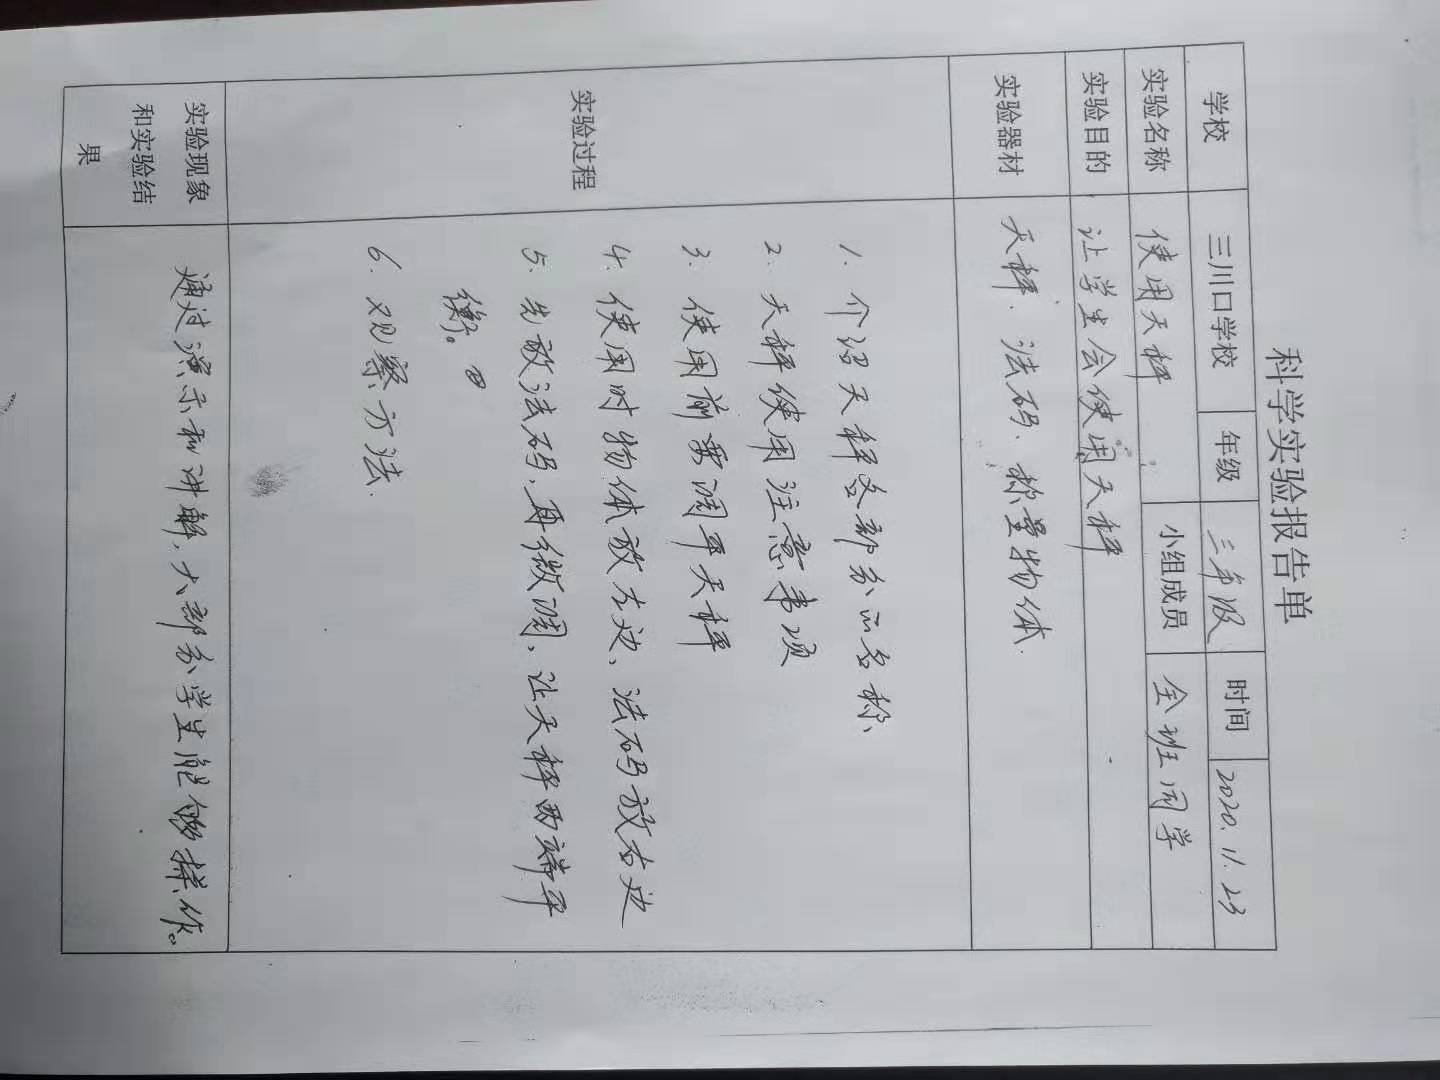 科学实验报告单
学校 三川口学校 年级 三年级 时间 2020.11.23
实验名称 使用天秤 小组成员 全班同学
实验目的 让学生会使用天秤
实验器材 天秤、法码、称量物体.
实验过程
1. 介绍天秤各部分的名称、
2. 天秤使用注意事项
3. 使用前要调平天秤
4. 使用时物体放左边、法码放右边
5. 先放法码,再微调,让天秤两端平
衡。
6. 观察方法.
实验现象
和实验结
果
通过演示和讲解,大部分学生能够操作。